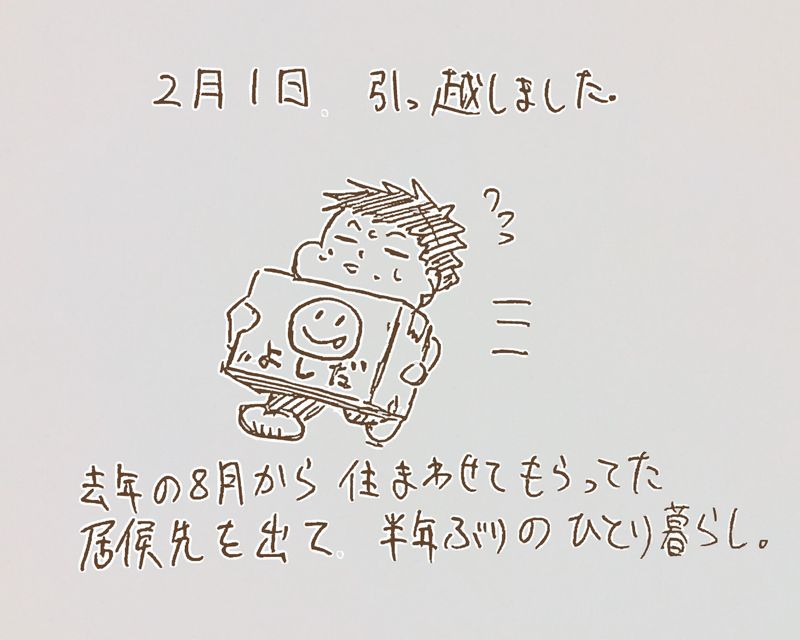 2月1日。引っ越しました。
よしだ
去年の8月から住まわせてもらってた
居候先を出て。半年ぶりのひとり暮らし。